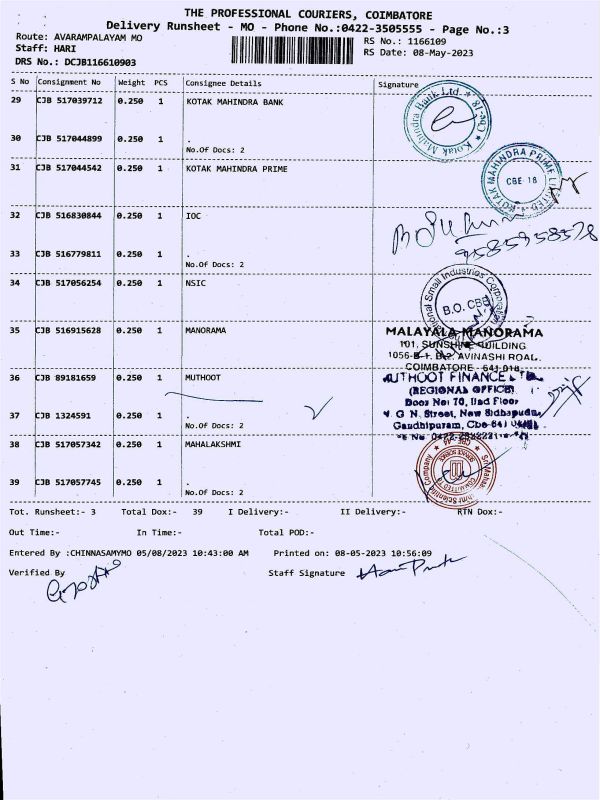 THE PROFESSIONAL COURIERS, COIMBATORE
Delivery Runsheet - MO - Phone No.:0422-3505555 - Page No.:3
Route: AVARAMPALAYAM MO
RS No.: 1166109
Staff: HARI
RS Date: 08-May-2023
DRS No.: DCJB116610903
S No Consignment No Weight PCS Consignee Details Signature
29 CJB 517039712 0.250 1 KOTAK MAHINDRA BANK
Kotak Mahindra Bank Ltd. * Cbe-18 *
30 CJB 517044899 0.250 1 .
No.Of Docs: 2
31 CJB 517044542 0.250 1 KOTAK MAHINDRA PRIME
KOTAK MAHINDRA PRIME LIMITED
CBE-18
32 CJB 516830844 0.250 1 IOC
9585958578
33 CJB 516779811 0.250 1 .
No.Of Docs: 2
34 CJB 517056254 0.250 1 NSIC
National Small Industries Corporation
B.O. CBE
35 CJB 516915628 0.250 1 MANORAMA
MALAYALA MANORAMA
101, SUNSHINE BUILDING
1056-B-1, B-2, AVINASHI ROAD,
COIMBATORE - 641 018
36 CJB 89181659 0.250 1 MUTHOOT
MUTHOOT FINANCE LTD
(REGIONAL OFFICE)
Door No: 70, IInd Floor
G N. Street, New Sidhapudu,
Gandhipuram, Cbe-641
37 CJB 1324591 0.250 1 .
No.Of Docs: 2
38 CJB 517057342 0.250 1 MAHALAKSHMI
Scientific Company
39 CJB 517057745 0.250 1 .
No.Of Docs: 2
Tot. Runsheet:- 3 Total Dox:- 39 I Delivery:- II Delivery:- RTN Dox:-
Out Time:- In Time:- Total POD:-
Entered By :CHINNASAMYMO 05/08/2023 10:43:00 AM Printed on: 08-05-2023 10:56:09
Verified By Staff Signature